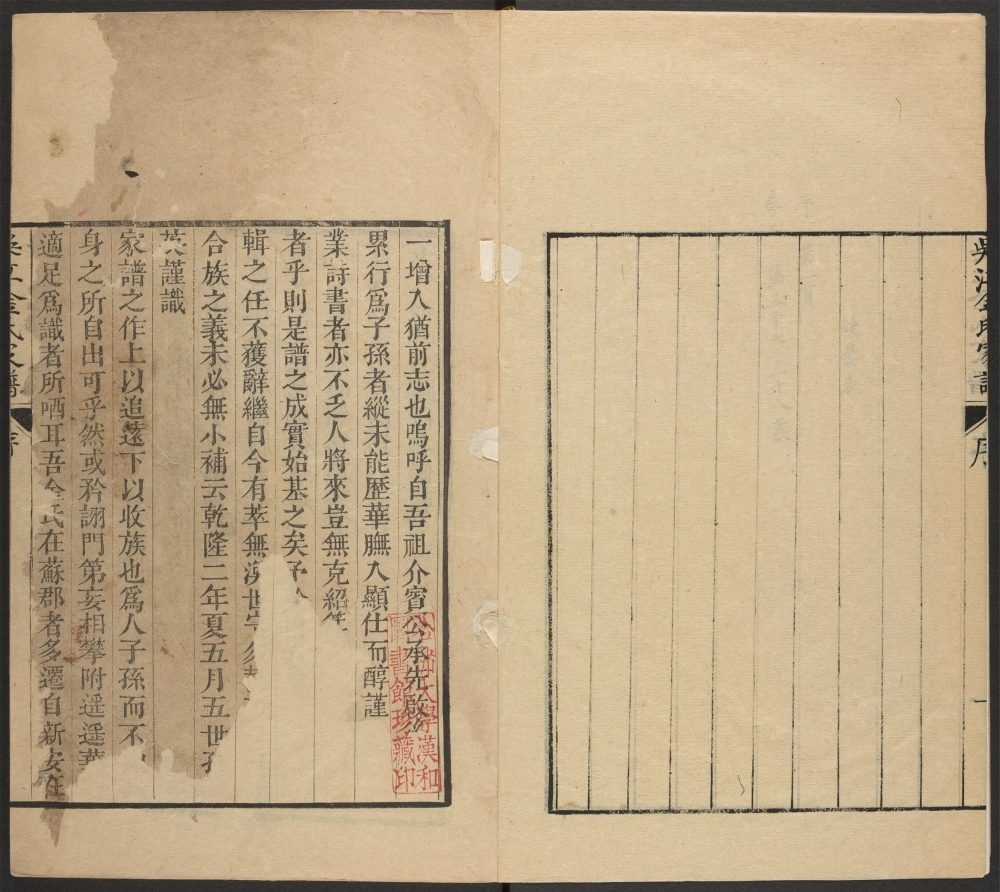 吳江金氏家譜
序
一
一增入猶前志也嗚呼自吾祖介賓公承先啟
累行爲子孫者縱未能歷華膴入顯仕而醇謹
業詩書者亦不乏人將來豈無克紹
者乎則是譜之成實始基之矣予
輯之任不獲辭繼自今有萃無渙世守
合族之義未必無小補云乾隆二年夏五月五世孫
英謹識
家譜之作上以追遠下以收族也爲人子孫而不
身之所自出可乎然或矜詡門第妄相攀附遥遥華
適足爲識者所哂耳吾金氏在蘇郡者多遷自新安在
吳江金氏家譜
序
大學漢和
圖書館珍藏印